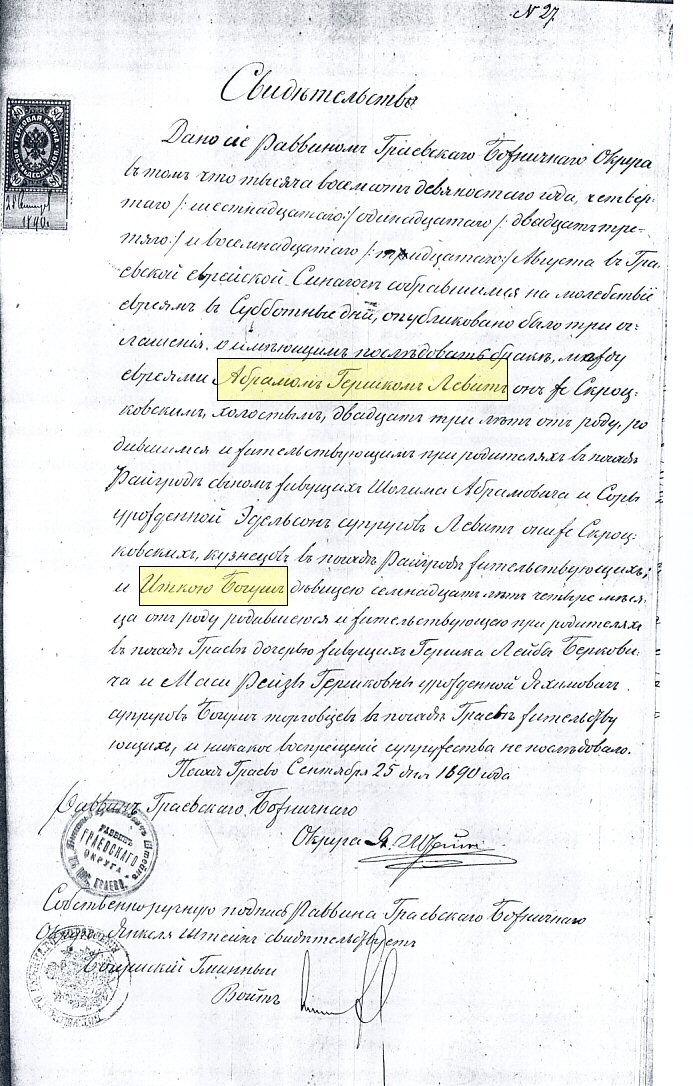 № 27
Свидѣтельство
Дано сіе Раввиномъ Граевскаго Божничнаго Округа
въ томъ что тысяча восемьсотъ девяностаго года, четвер-
таго /:шестнадцатаго:/ одинадцатаго /:двадцать тре-
тяго:/ и восемнадцатаго /:тридцатаго:/ Августа въ Гра-
евской еврейской Синагогѣ собравшимся на молебствіе
евреямъ въ Субботные дни, опубликовано было три ог-
лашенія о имѣющимъ послѣдовать бракѣ, между
евреями Абрамомъ Гершкомъ Левитъ онъ же Скроц-
ковскимъ, холостымъ, двадцать три лѣтъ отъ роду, ро-
дившимся и жительствующимъ при родителяхъ въ посадѣ
Райгродѣ сыномъ живущихъ Шолима Абрамовича и Соры
урожденной Эдельсонъ супруговъ Левитъ они же Скроц-
ковскихъ, кузнецовъ въ посадѣ Райгродѣ жительствующихъ;
и Иткою Богушъ дѣвицею семнадцать лѣтъ четыре мѣся-
ца отъ роду родившеюся и жительствующею при родителяхъ
въ посадѣ Граевѣ дочерью живущихъ Гершка Лейбы Беркови-
ча и Маси Рейзы Гершковны урожденной Яхимовичъ
супруговъ Богушъ торговцевъ въ посадѣ Граевѣ жительству-
ющихъ, и никакое воспрещеніе супружества не послѣдовало.
Посадъ Граево Сентября 25 дня 1890 года
Раввинъ Граевскаго Божничнаго
Округа Я. Штейнъ
РАВВИНЪ
ГРАЕВСКАГО
ОКРУГА
Собственноручную подпись Раввина Граевскаго Божничнаго
Округа Янкеля Штейнъ свидѣтельствуетъ
Гминный
Войтъ